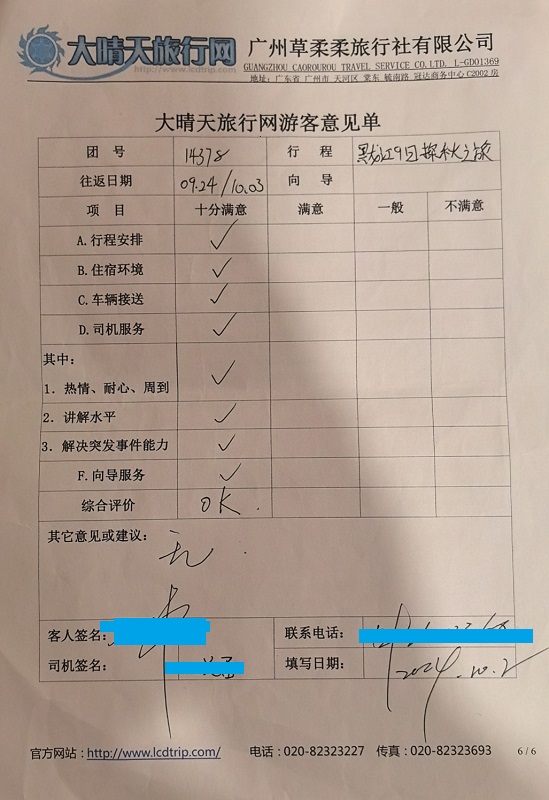 大晴天旅行网
http://www.lcdtrip.com
广州草柔柔旅行社有限公司
GUANGZHOU CAOROUROU TRAVEL SERVICE CO.LTD. L-GD01369
地址：广东省 广州市 天河区 棠东 毓南路 冠达商务中心C2002房
大晴天旅行网游客意见单
团 号 14378 行 程 黑龙江9日探秋之旅
往返日期 09.24/10.03 向 导
项 目 十分满意 满意 一般 不满意
A.行程安排 ✓
B.住宿环境 ✓
C.车辆接送 ✓
D.司机服务 ✓
其中：
1. 热情、耐心、周到 ✓
2. 讲解水平 ✓
3. 解决突发事件能力 ✓
F.向导服务 ✓
综合评价 OK.
其它意见或建议： 无.
客人签名： 联系电话：
司机签名： 填写日期： 2024.10.2
官方网站：http://www.lcdtrip.com/ 电话：020-82323227 传真：020-82323693 6/6